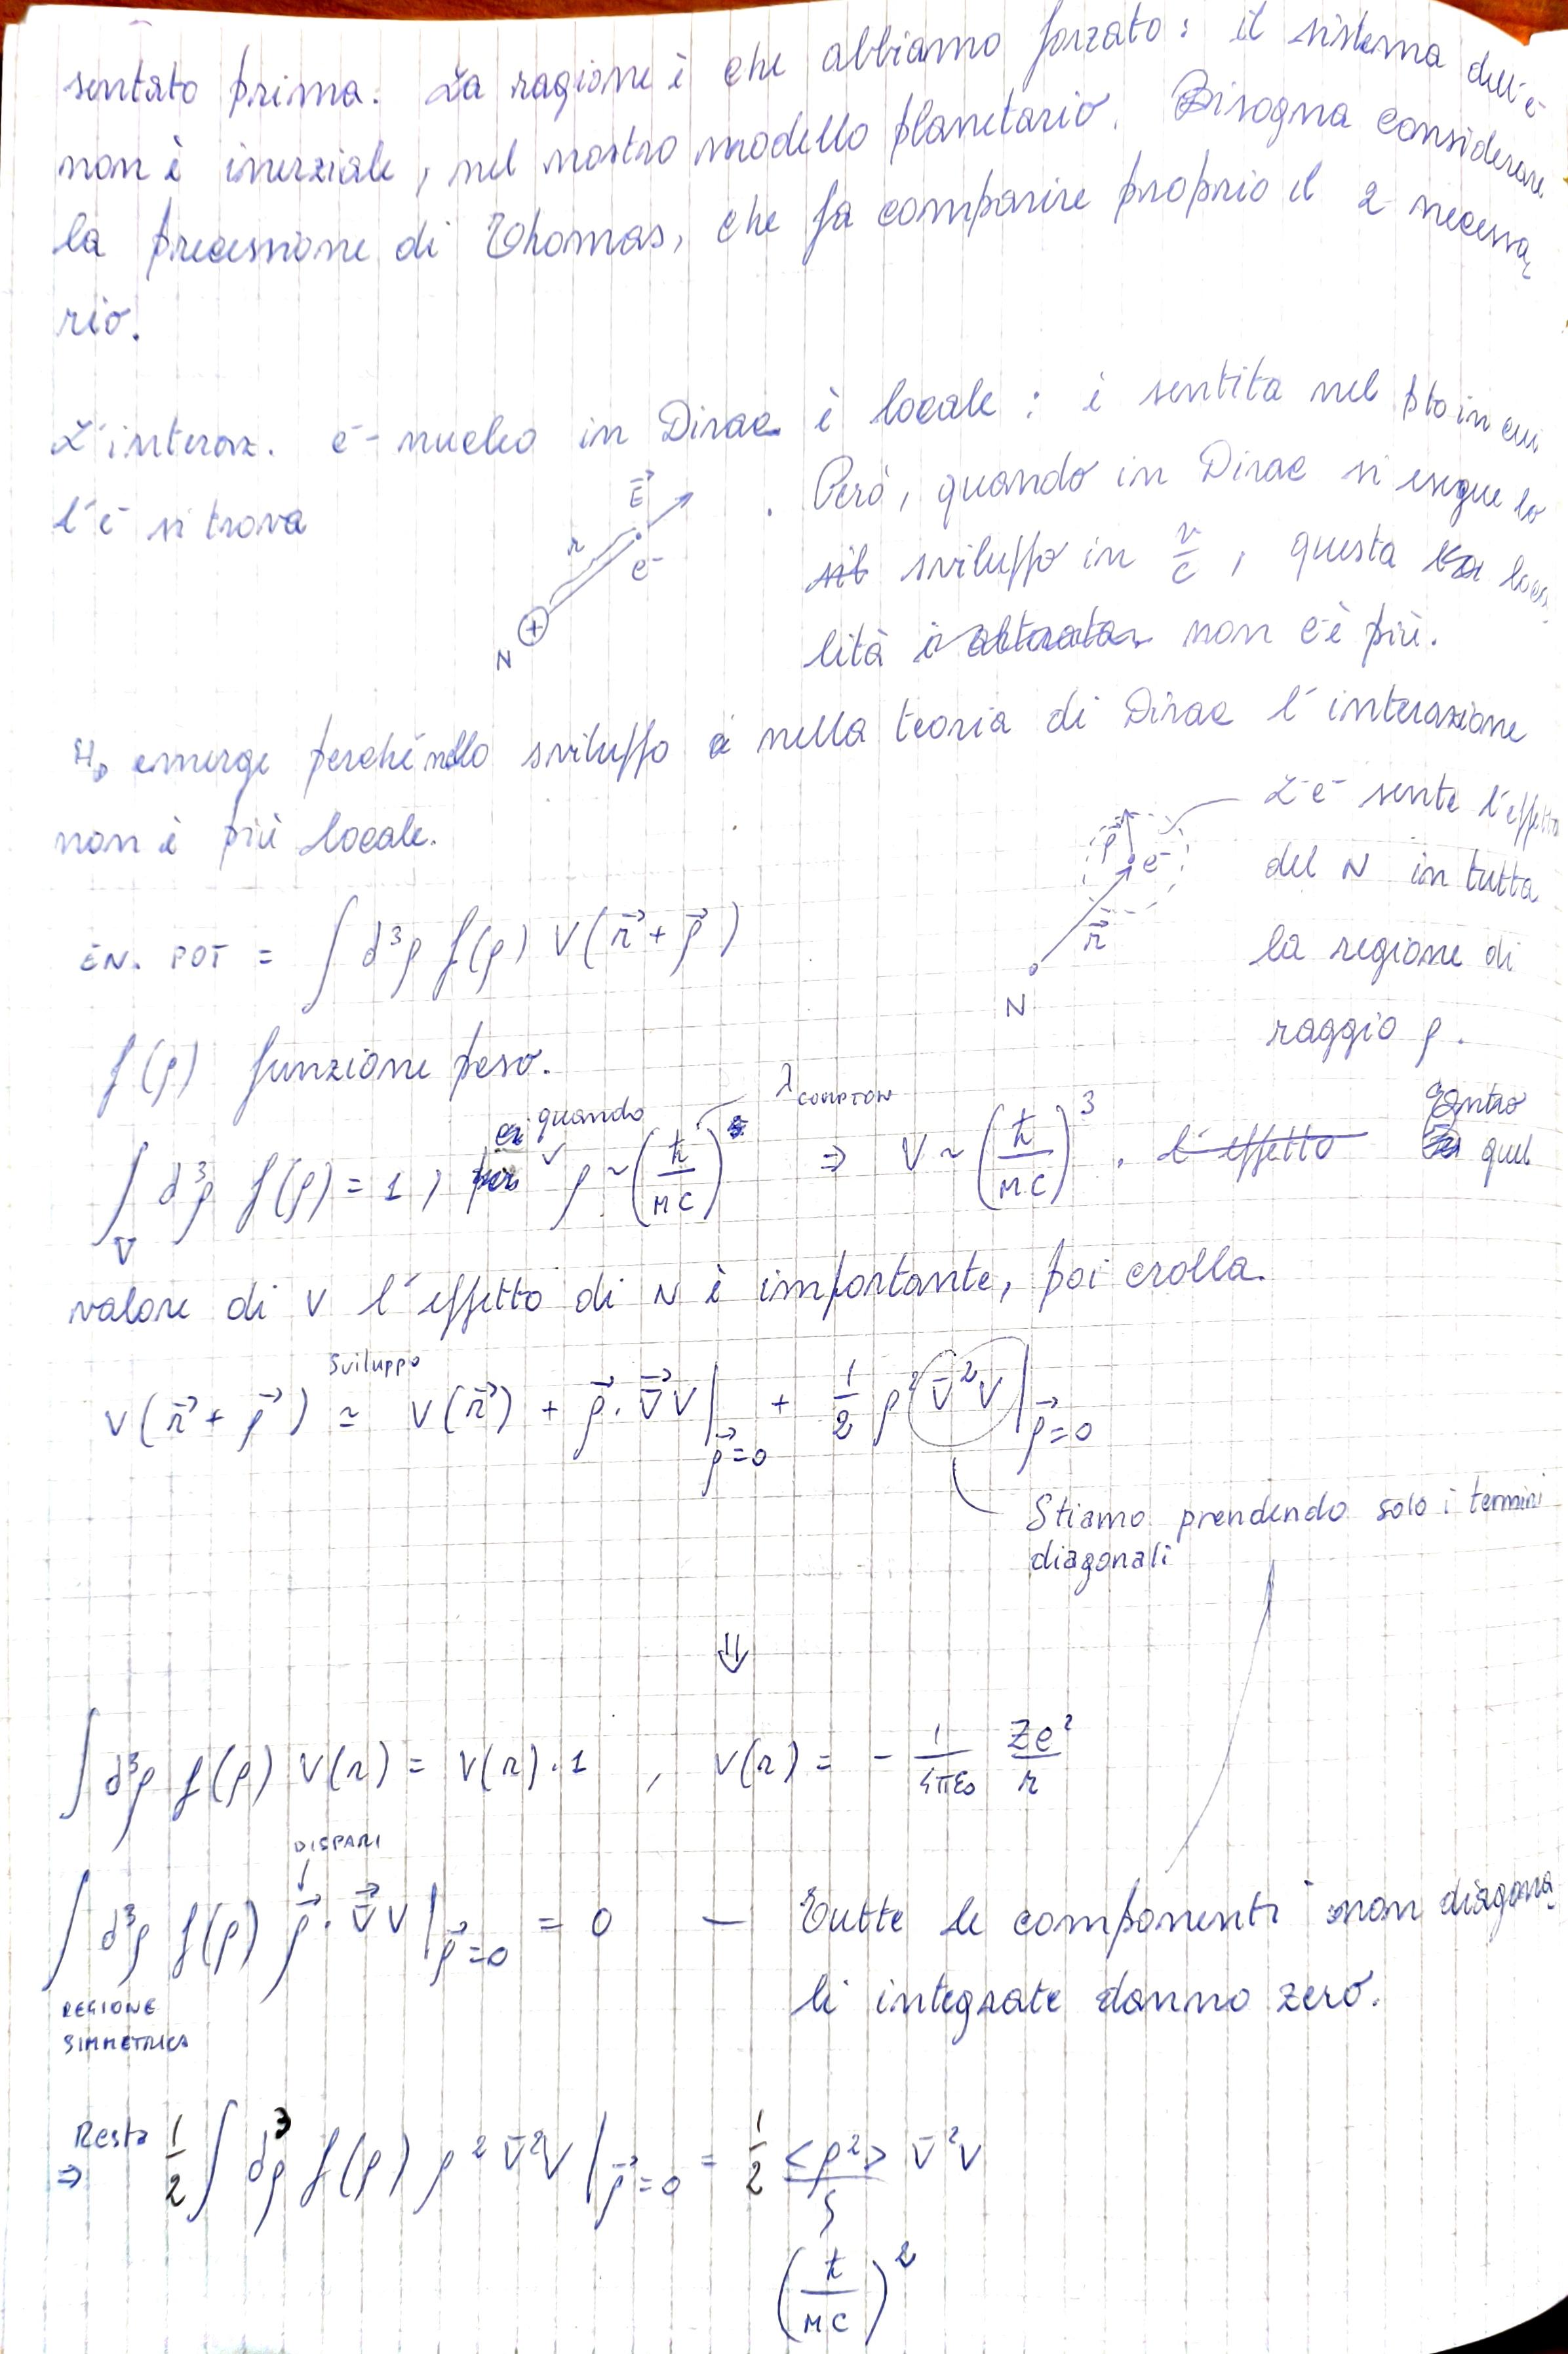 sentato prima. La ragione è che abbiamo forzato: il sistema dell'e⁻
non è inerziale, nel nostro modello planetario. Bisogna considerare
la precessione di Thomas, che fa comparire proprio il 2 necessa
rio.
L'interaz. e⁻-nucleo in Dirac è locale: è sentita nel pto in cui
l'e⁻ si trova
. Però, quando in Dirac si esegue lo
sviluppo in v/c, questa loca
lità non c'è più.
E⃗
r
e⁻
N
+
H_D emerge perché nello sviluppo nella teoria di Dirac l'interazione
non è più locale.
L'e⁻ sente l'effetto
del N in tutta
la regione di
raggio ρ.
ρ⃗
e⁻
r⃗
N
EN. POT = ∫ d³ρ f(ρ) V(r⃗ + ρ⃗)
f(ρ) funzione peso.
∫_V d³ρ f(ρ) = 1, quando ρ ~ (ħ/MC) ⇒ V ~ (ħ/MC)³. l'effetto Entro quel
λ COMPTON
valore di V l'effetto di N è importante, poi crolla.
sviluppo
V(r⃗ + ρ⃗) ≃ V(r⃗) + ρ⃗·∇⃗V|_ρ⃗=0 + 1/2 ρ² ∇²V|_ρ⃗=0
Stiamo prendendo solo i termini
diagonali
⇓
∫ d³ρ f(ρ) V(r) = V(r)·1 , V(r) = - 1/4πε₀ Ze²/r
DISPARI
↓
∫ d³ρ f(ρ) ρ⃗·∇⃗V|_ρ⃗=0 = 0 — Tutte le componenti non diagona
li integrate danno zero.
REGIONE
SIMMETRICA
Resta
⇒ 1/2 ∫ d³ρ f(ρ) ρ² ∇²V|_ρ⃗=0 = 1/2 <ρ²> ∇²V
(ħ/MC)²